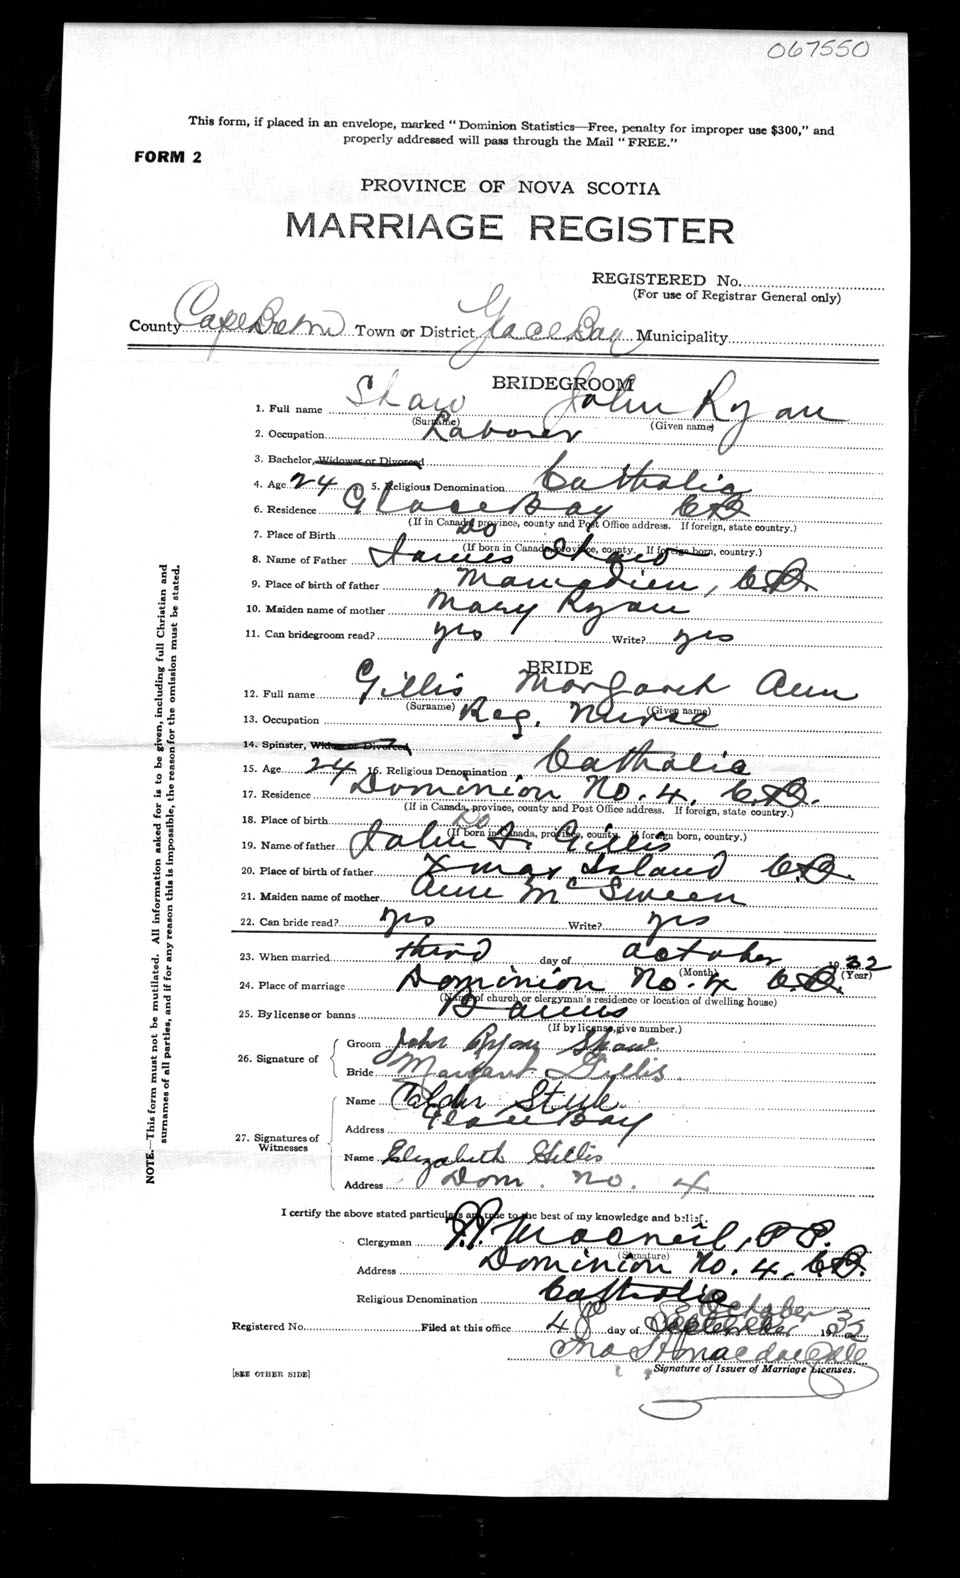 067550
This form, if placed in an envelope, marked "Dominion Statistics—Free, penalty for improper use $300," and
properly addressed will pass through the Mail "FREE."
FORM 2
PROVINCE OF NOVA SCOTIA
MARRIAGE REGISTER
REGISTERED No.
(For use of Registrar General only)
County Cape Breton Town or District Glace Bay Municipality
BRIDEGROOM
1. Full name Shaw John Ryan
(Surname) (Given name)
2. Occupation Laborer
3. Bachelor, Widower or Divorced
4. Age 24 5. Religious Denomination Catholic
6. Residence Glace Bay C.B.
(If in Canada, province, county and Post Office address. If foreign, state country.)
7. Place of Birth Do
(If born in Canada, province, county. If foreign born, country.)
8. Name of Father James Shaw
9. Place of birth of father Marradieu, C.B.
10. Maiden name of mother Mary Ryan
11. Can bridegroom read? yes Write? yes
BRIDE
12. Full name Gillis Margaret Ann
(Surname) (Given name)
13. Occupation Reg. Nurse
14. Spinster, Widow or Divorced
15. Age 24 16. Religious Denomination Catholic
17. Residence Dominion No. 4, C.B.
(If in Canada, province, county and Post Office address. If foreign, state country.)
18. Place of birth Do
(If born in Canada, province, county. If foreign born, country.)
19. Name of father John J. Gillis
20. Place of birth of father Xmas Island C.B.
21. Maiden name of mother Ann McSween
22. Can bride read? yes Write? yes
23. When married third day of October 1932
(Month) (Year)
24. Place of marriage Dominion No. 4 C.B.
(Name of church or clergyman's residence or location of dwelling house)
25. By license or banns Banns
(If by license, give number.)
26. Signature of
Groom John Ryan Shaw
Bride Margaret Gillis
27. Signatures of Witnesses
Name
Address Glace Bay
Name Elizabeth Gillis
Address Dom. No. 4
I certify the above stated particulars are true to the best of my knowledge and belief.
Clergyman MacNeil, P.P.
(Signature)
Address Dominion No. 4, C.B.
Religious Denomination Catholic
October
Registered No. Filed at this office 4 day of September 1932
Signature of Issuer of Marriage Licenses.
[SEE OTHER SIDE]
NOTE.—This form must not be mutilated. All information asked for is to be given, including full Christian and
surnames of all parties, and if for any reason this is impossible, the reason for the omission must be stated.